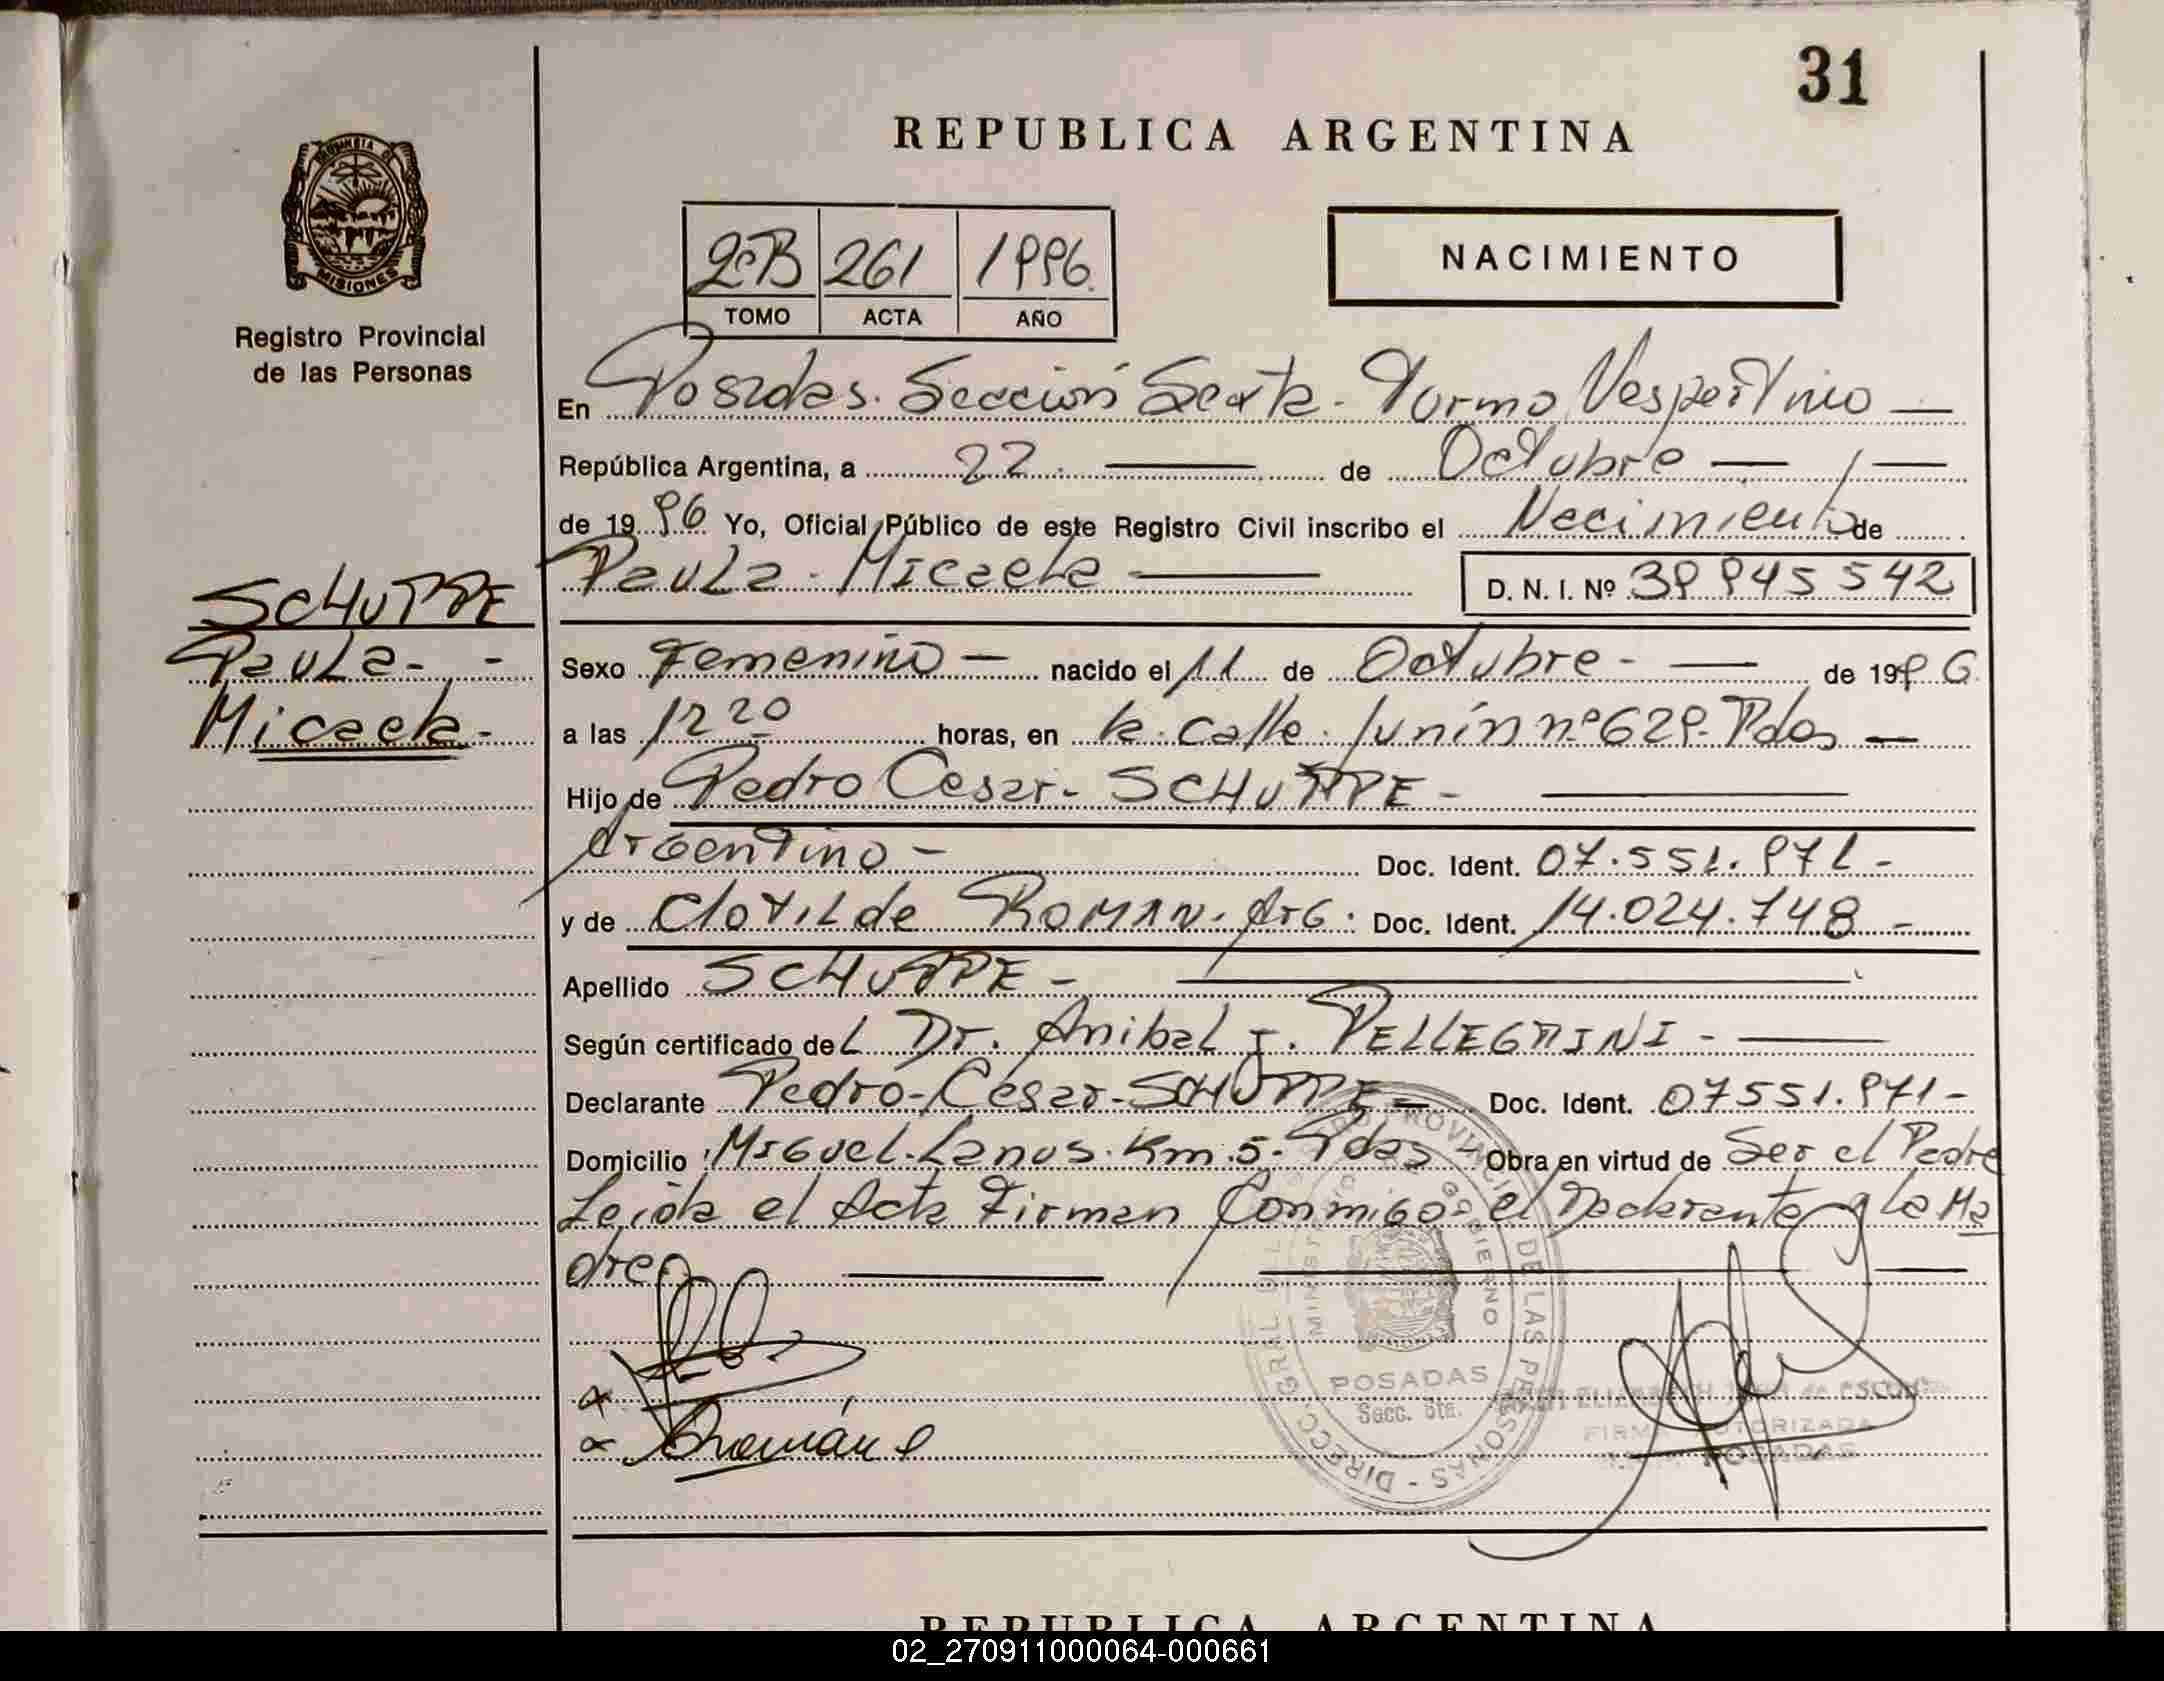 31
REPUBLICA ARGENTINA
PROVINCIA DE MISIONES
Registro Provincial
de las Personas
2ºB 261 1996.
TOMO ACTA AÑO
NACIMIENTO
En Posadas. Sección Sexta - Turno Vespertino —
República Argentina, a 22. — de Octubre — / —
de 1996 Yo, Oficial Público de este Registro Civil inscribo el Nacimiento de
Paula - Micaela —
D. N. I. Nº 39 945 542
SCHUPPE
Paula - -
Micaela -
Sexo Femenino — nacido el 11 de Octubre - — de 1996
a las 12 20 horas, en la Calle. Junín nº 629- Pdas —
Hijo de Pedro Cesar - SCHUPPE - —
Argentino - Doc. Ident. 07.551.971-
y de Clotilde ROMAN. Arg. Doc. Ident. 14.024.748 -
Apellido SCHUPPE - —
Según certificado del Dr. Anibal I. PELLEGRINI - —
Declarante Pedro - Cesar - SCHUPPE - Doc. Ident. 07551.971-
Domicilio Miguel. Lanus. Km. 5- Pdas Obra en virtud de Ser el Padre
Leida el Acta Firman Conmigo el Declarante y La Ma
dre
DIRECC. GRAL. DEL REGISTRO PROVINCIAL DE LAS PERSONAS -
MINISTERIO DE GOBIERNO
POSADAS
Secc. 6ta.
ELIZABETH de
FIRMA AUTORIZADA
POSADAS
Cromán e
REPUBLICA ARGENTINA
02_270911000064-000661